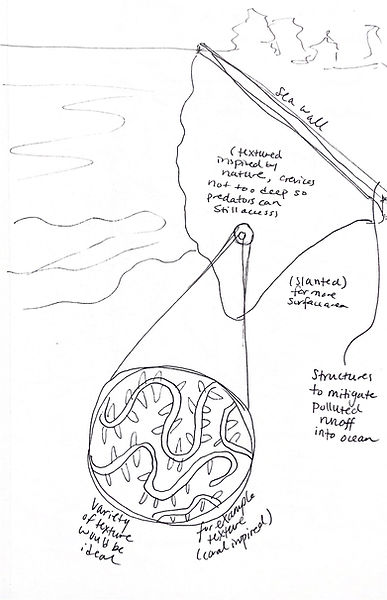 Sea wall
(textured
inspired by
nature, crevices
not too deep so
predators can
still access)
(slanted)
for more
surface area
Structures
to mitigate
polluted
runoff
into ocean
Variety
of texture
would be
ideal
for example
texture
(coral inspired)